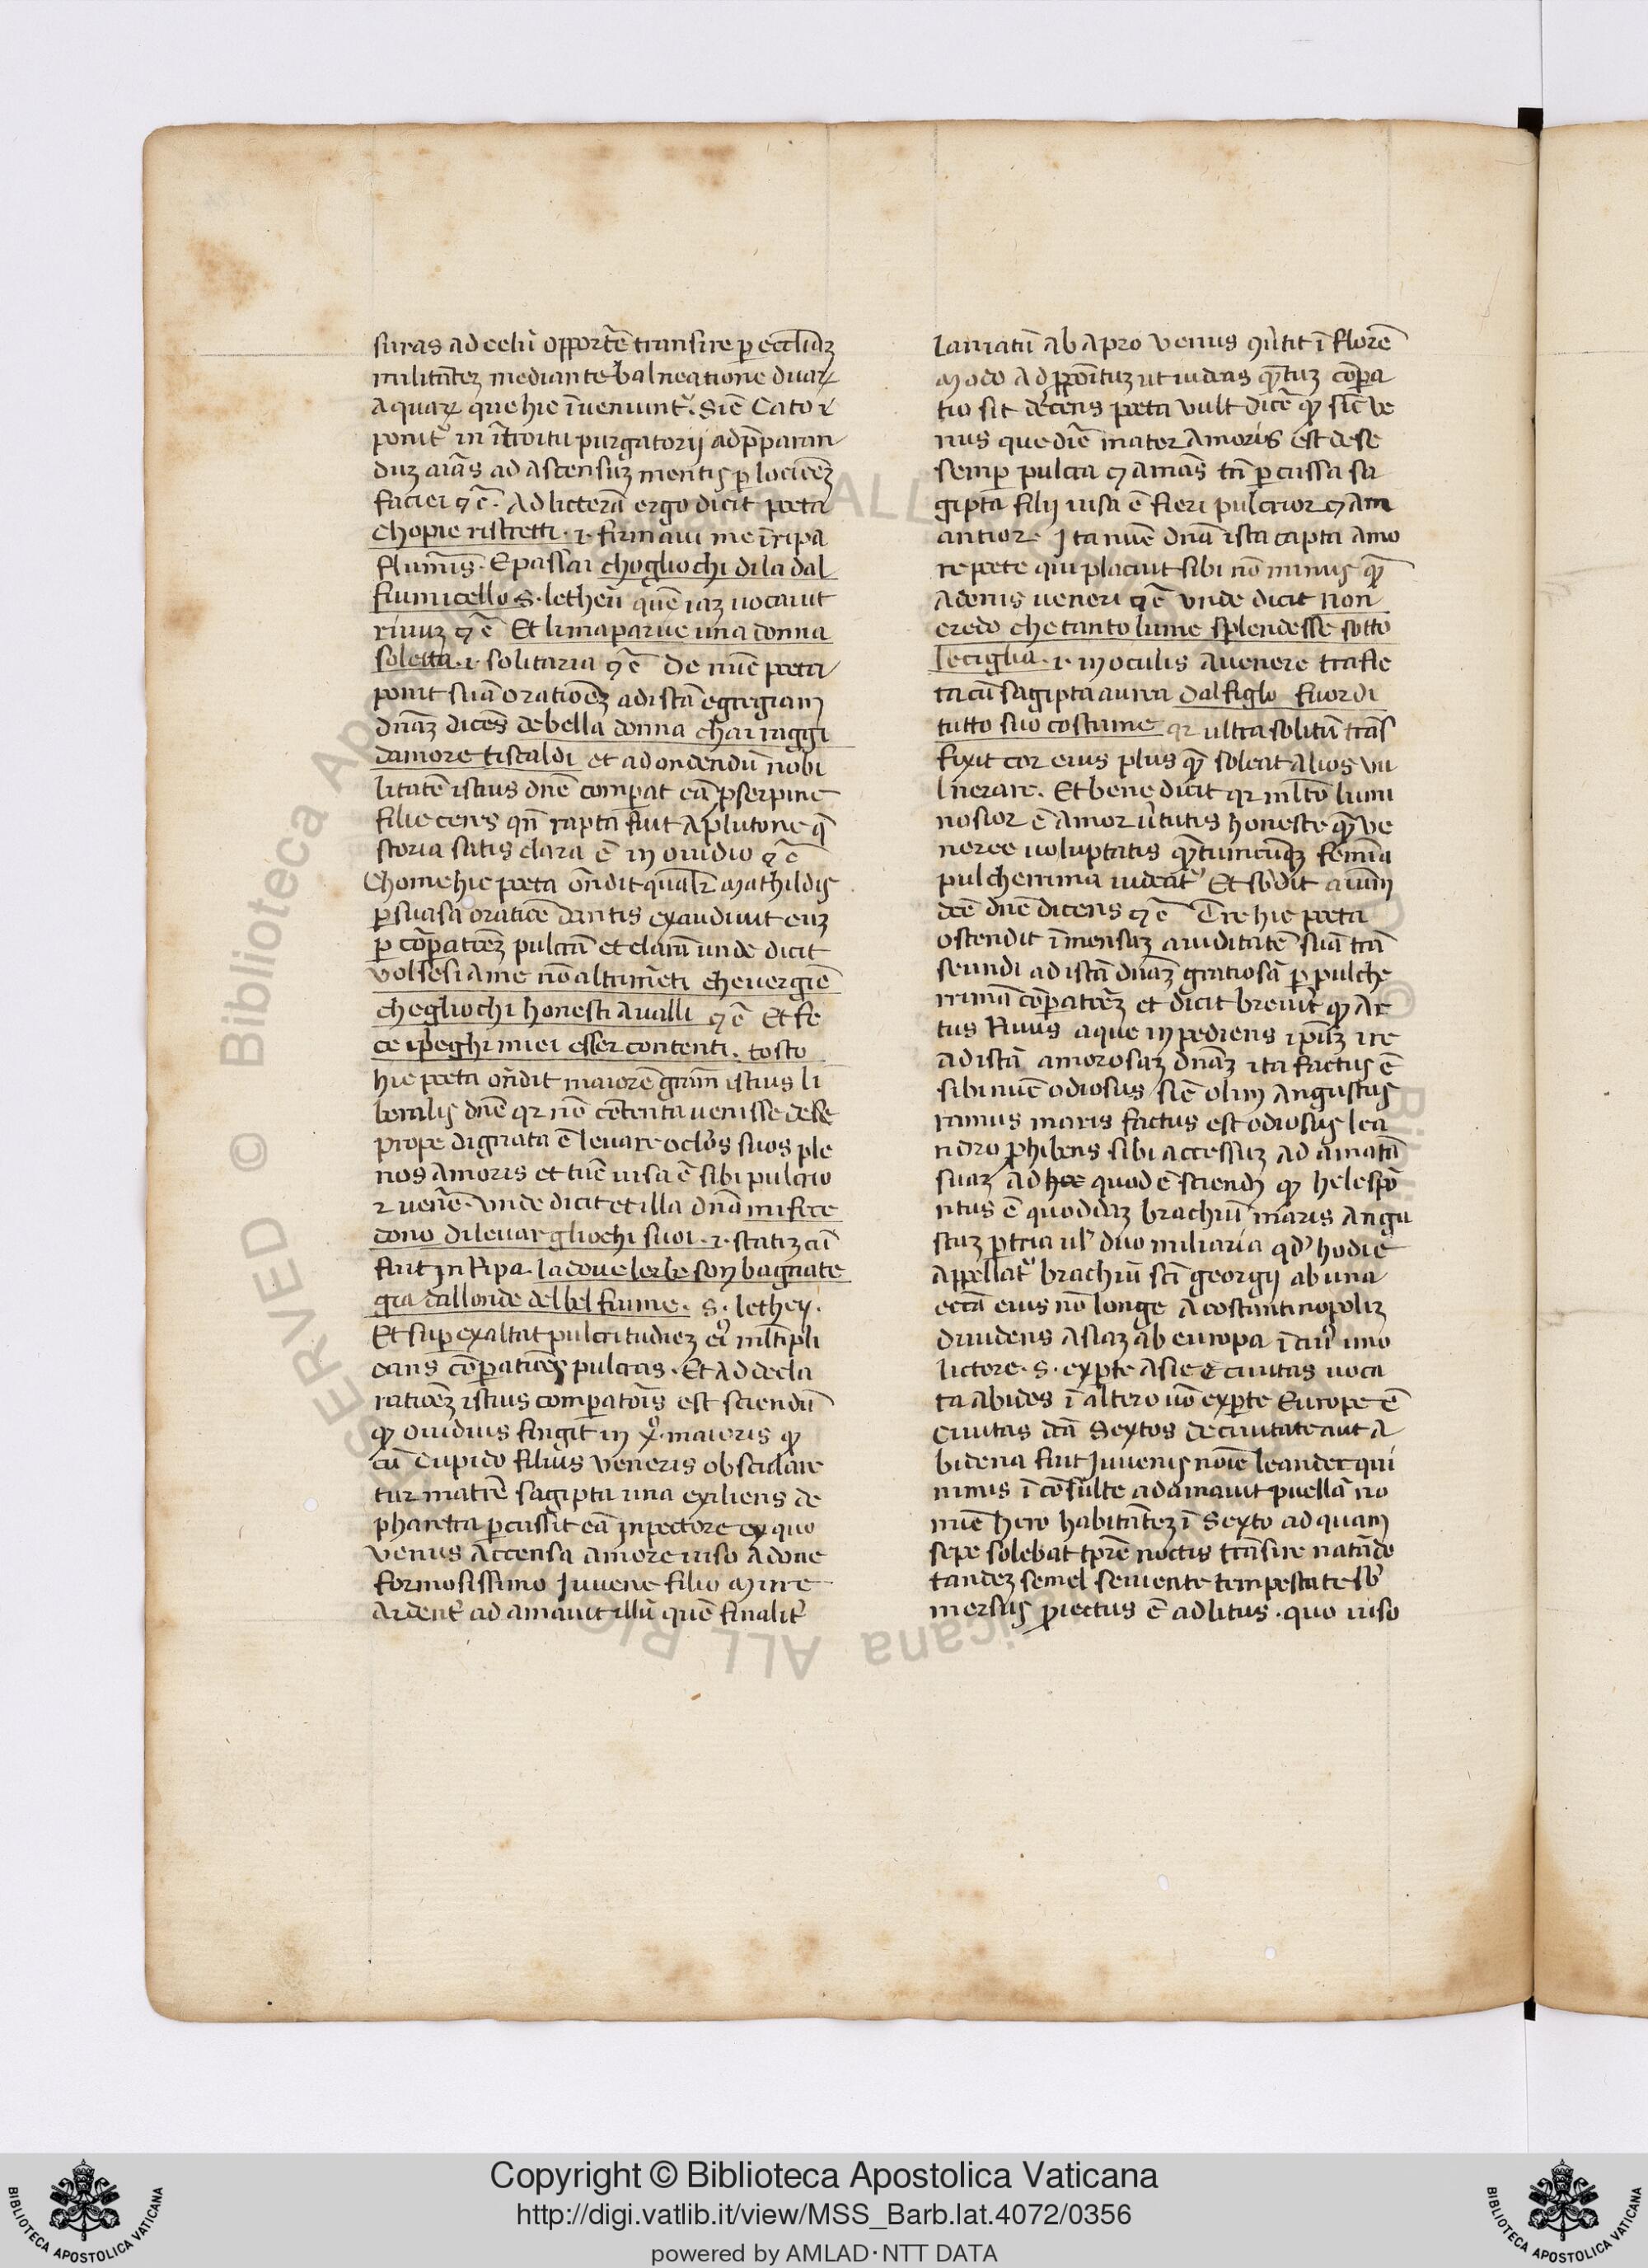 suras ad celu᷑ opport̄e transire ꝑ eccl̄iaꝫ
militāteꝫ mediante balneatione duaꝝ
aquaꝝ que hic īueniunt᷑. Sic̄ Cato r̄
ponit᷑ in ītroitu purgatorij ad p̄paran
duꝫ aīas ad ascensuꝫ mentis ꝑ locioneꝫ
faciei ⁊ c̄. Ad licterā ergo dicit poeta
chopie ristretti .i. firmaui me ī ripa
fluminis. E passai choglioch i di la dal
fiumicello .s. letheū quē iaꝫ uocauit
riuuꝫ ⁊ c̄ Et li maparue una donna
soletta .i. solitaria ⁊ c̄ De nūc poeta
ponit suā oratiōeꝫ ad istā egregiam
dn̄aꝫ dicēs de bella donna chai raggi
damore tiscaldi et ad ondendū nobi
litatē istius dn̄e comparat eā ꝓserpine
filie ceres qn̄ rapta fuit a plutone q̄
storia satis clara ē in ouidio ⁊ c̄
Chome hic poeta on̄dit qualr̄ mathildis
ꝑsuasa oratiōe dantis exaudiuit euꝫ
ꝑ cōparatōeꝫ pulcrā et clarā unde dicit
volsesi a me nō altrimēti che uergīe
che gliochi honesti aualli ⁊ c̄ Et fe
ce i peghi miei esser contenti. tosto
hic poeta on̄dit maiorē grām istius li
beralis dn̄e qꝛ nō cōtenta uenisse de se
prope dignata ē leuare oclōs suos ple
nos amoris et tūc uisa ē sibi pulcrio
r uenere. Unde dicit et illa dn̄a mi fece
dono di leuar gliochi suoi .i. statiꝫ cū
fuit in Ripa. la doue lerbe son bagnate
gia dallonde del bel fiume. s. lethey.
Et suꝑ exaltat pulcritudiēꝫ ei᷒ ml̄tipli
cans cōparatiōes pulcras. Et ad decla
ratiōeꝫ istius comparatōis est sciendū
ꝙ ouidius fingit in xº. maioris ꝙ
cū Cupido filius veneris obscularē
tur matrē sagipta una exiliens de
pharetra ꝑcussit eā in pectore ex quo
venus accensa amore uiso adone
formosissimo Juuene filio mirre
ardent᷑ ad amauit illū quē finalit᷑
laniatū ab apro venus ꝯu᷑tit ī florē
modo ad ꝓpōituꝫ ut uideas qᷓtuꝫ cōpa
tio sit decens poeta vult dicē ꝙ sic̄ ve
nus que dic̄ mater amoris est de se
semꝑ pulcra ⁊ amās tn̄ ꝑcussa sa
gipta filij uisa ē fieri pulcrior ⁊ am
antior. Ita nūc dn̄a ista capta amo
re poete qui placuit sibi nō minus qᷓ
adonis ueneri ⁊ c̄ vnde dicit non
credo che tanto lume splendesse sotto
leciglia .i. in oculis a uenere trafic
ta cū sagipta aurea dal figlo fuor di
tutto suo costume qꝛ ultra solitū trās
fixit cor eius plus qᷓ soleat alios vu
lnerare. Et bene dicit qꝛ ml̄to lumi
nosior ē amor u᷑tutis honeste qᷓ ve
neree uoluptatis qᷓtumcūqꝫ femīa
pulcherrima uideat᷑ Et sb̄dit auium
dc̄e dn̄e dicens ⁊ c̄ Tre hic poeta
ostendit īmensaꝫ auiditatē suā trā
seundi ad istā dn̄aꝫ gratiosā ꝑ pulche
rrimā cōparatōeꝫ et dicit breuit᷑ ꝙ ar
tus Riuus aque inpediens ip̄uꝫ ire
ad istā amorosaꝫ dn̄aꝫ ita factus ē
sibi nūc odiosus sic̄ olim angustus
ramus maris factus est odiosus lea
ndro ꝓhibens sibi accessuꝫ ad amatā
suaꝫ ad hoc quod ē sciendꝫ ꝙ helespō
ntus ē quoddaꝫ brachiū maris angu
stuꝫ ꝑ tria ul᷑ duo miliaria qd̄ hodie
appellat᷑ brachiū sc̄i georgij ab una
ectā eius nō longe a costantinopoliꝫ
diuidens asiaꝫ ab europa ī cui᷒ uno
lictore .s. ex ꝑte asie ē ciuitas uoca
ta abidos ī altero uō ex ꝑte Europe ē
ciuitas dc̄a Sextos de ciuitate aut a
bidena fuit Juuenis noīe leander qui
nimis ī cōsulte adamauit puellā no
mīe hero habitāteꝫ ī Sexto ad quam
sepe solebat tp̄re noctis trāsire natādo
tandeꝫ semel seuiente tempestate sb̄
mersus ꝓiectus ē ad litus. quo uiso
Copyright © Biblioteca Apostolica Vaticana
http://digi.vatlib.it/view/MSS_Barb.lat.4072/0356
powered by AMLAD·NTT DATA